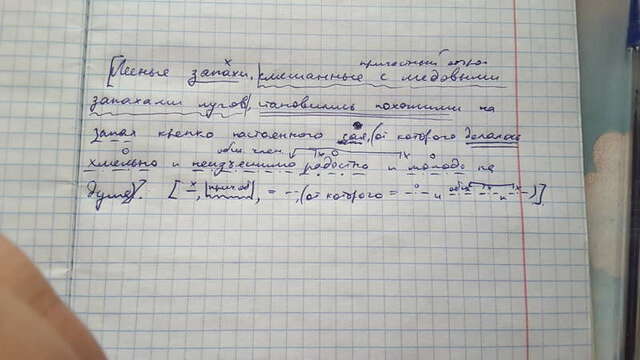 причастный оборот
[Лесные запахи, |смешанные с медовыми
запахами лугов|, становились похожими на
запах крепко настоянного сая, (от которого делалось
общ. член
хмельно и неизъяснимо радостно и молодо на
душе)]. [ –, |прич об|, = --, (от которого = --- и --- и ---)].